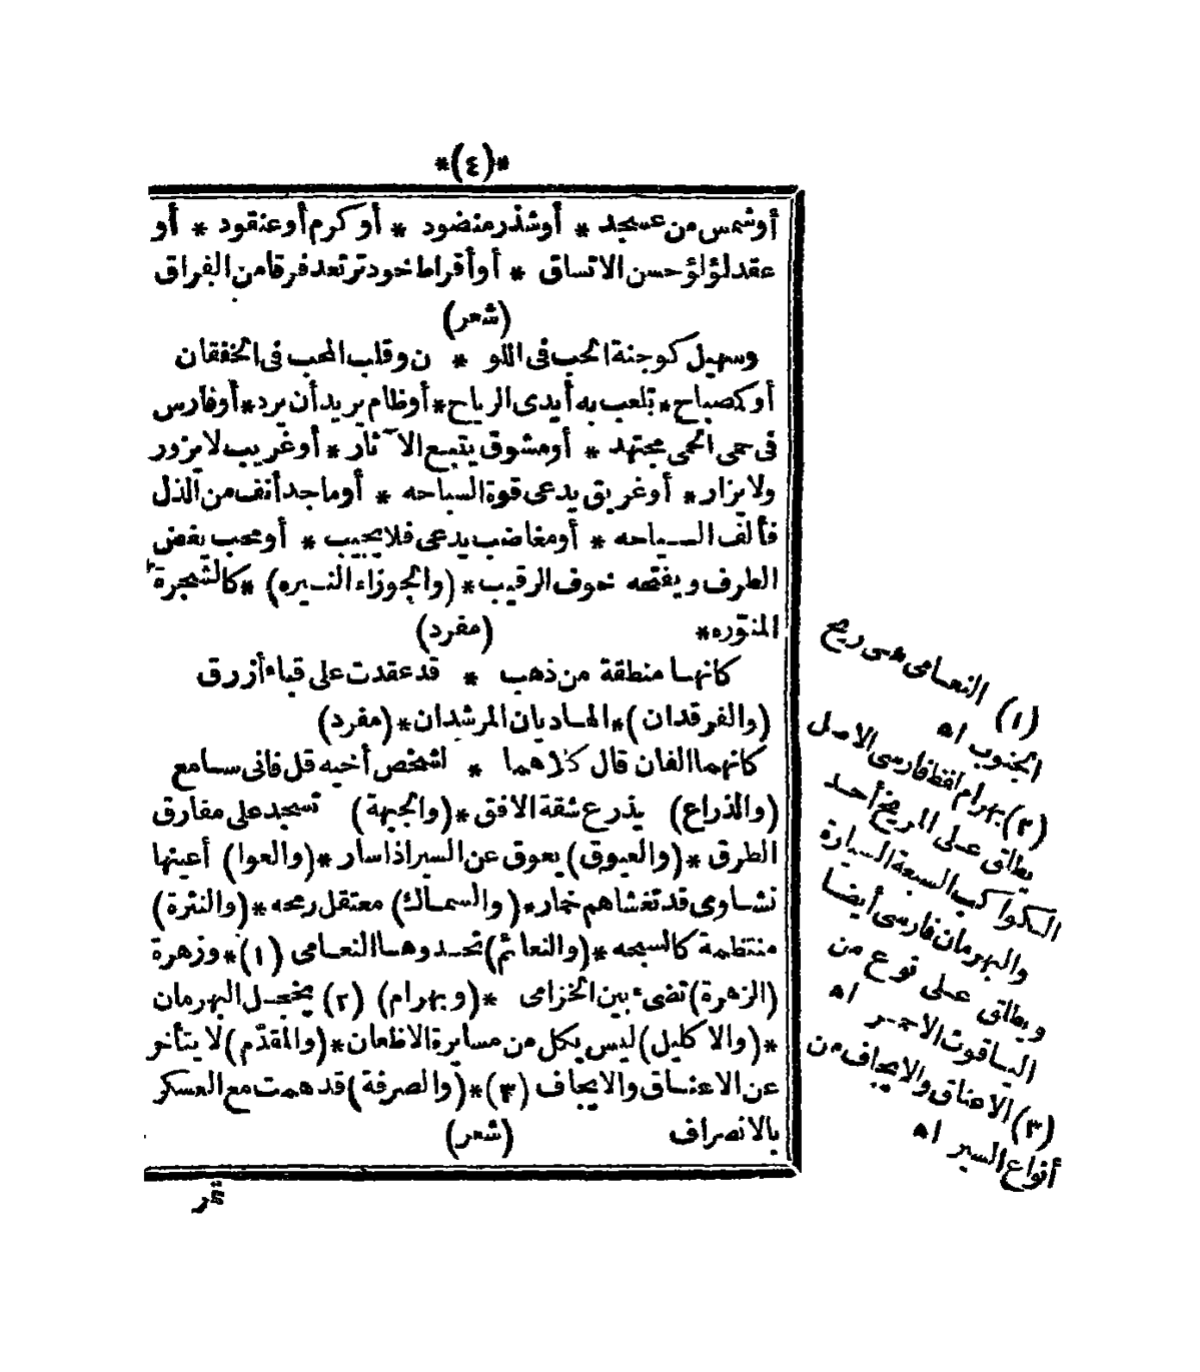 *(٤)*
أو شمس من عسجد * أو شذر منضود * أو كرم أو عنقود * أو
عقد لؤلؤ حسن الاتساق * أو أقراط خود ترتعد فرقا من الفراق
(شعر)
وسهيل كوجنة الحب فى اللو * ن وقلب المحب فى الخفقان
أو كصباح * تلعب به أيدى الرياح * أو ظام يريد أن يرد * أو فارس
فى حمى الحمى مجتهد * أو مشوق يتبع الآثار * أو غريب لا يزور
ولا يزار * أو غريق يدعى قوة السباحه * أو ماجد أنف من الذل
فألف السياحه * أو مغاضب يدعى فلا يجيب * أو محب يغض
الطرف ويفتحه خوف الرقيب * (والجوزاء النيره) * كالشجرة
المنوّره * (مفرد)
كانها منطقة من ذهب * قد عقدت على قباء أزرق
(والفرقدان) * الهاديان المرشدان * (مفرد)
كانهما الفان قال كلاهما * لشخص أخيه قل فانى سامع
(والذراع) يذرع شقة الافق * (والجبهة) تسجد على مفارق
الطرق * (والعيوق) يعوق عن السير اذا سار * (والعوا) أعينها
نشاوى قد تغشاهم خمار * (والسماك) معتقل رمحه * (والنثرة)
منتظمة كالسبحه * (والنعائم) تحدوها النعامى (١) * وزهرة
(الزهرة) تضىء بين الخزامى * (وبهرام) (٢) يخجل البهرمان
* (والاكليل) ليس يكل من مسايرة الاظعان * (والمقدّم) لا يتأخر
عن الاعناق والايجاف (٣) * (والصرفة) قد همت مع العسكر
بالانصراف (شعر)
(١) النعامى هى ريح
الجنوب اه
(٢) بهرام لفظ فارسى الاصل
يطلق على المريخ أحد
الكواكب السبعة السيارة
والبهرمان فارسى أيضا
ويطلق على نوع من
الياقوت الاحمر اه
(٣) الاعناق والايجاف من
أنواع السير اه